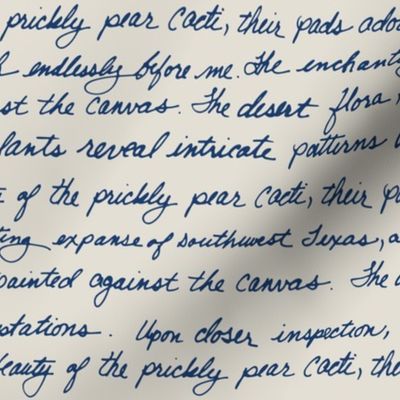 prickly pear cacti, their pads ador
endlessly before me. The enchanti
st the canvas. The desert flora
lants reveal intricate patterns
of the prickly pear cacti, their pa
ting expanse of southwest Texas, a
painted against the canvas. The
ptations. Upon closer inspection,
beauty of the prickly pear cacti, the